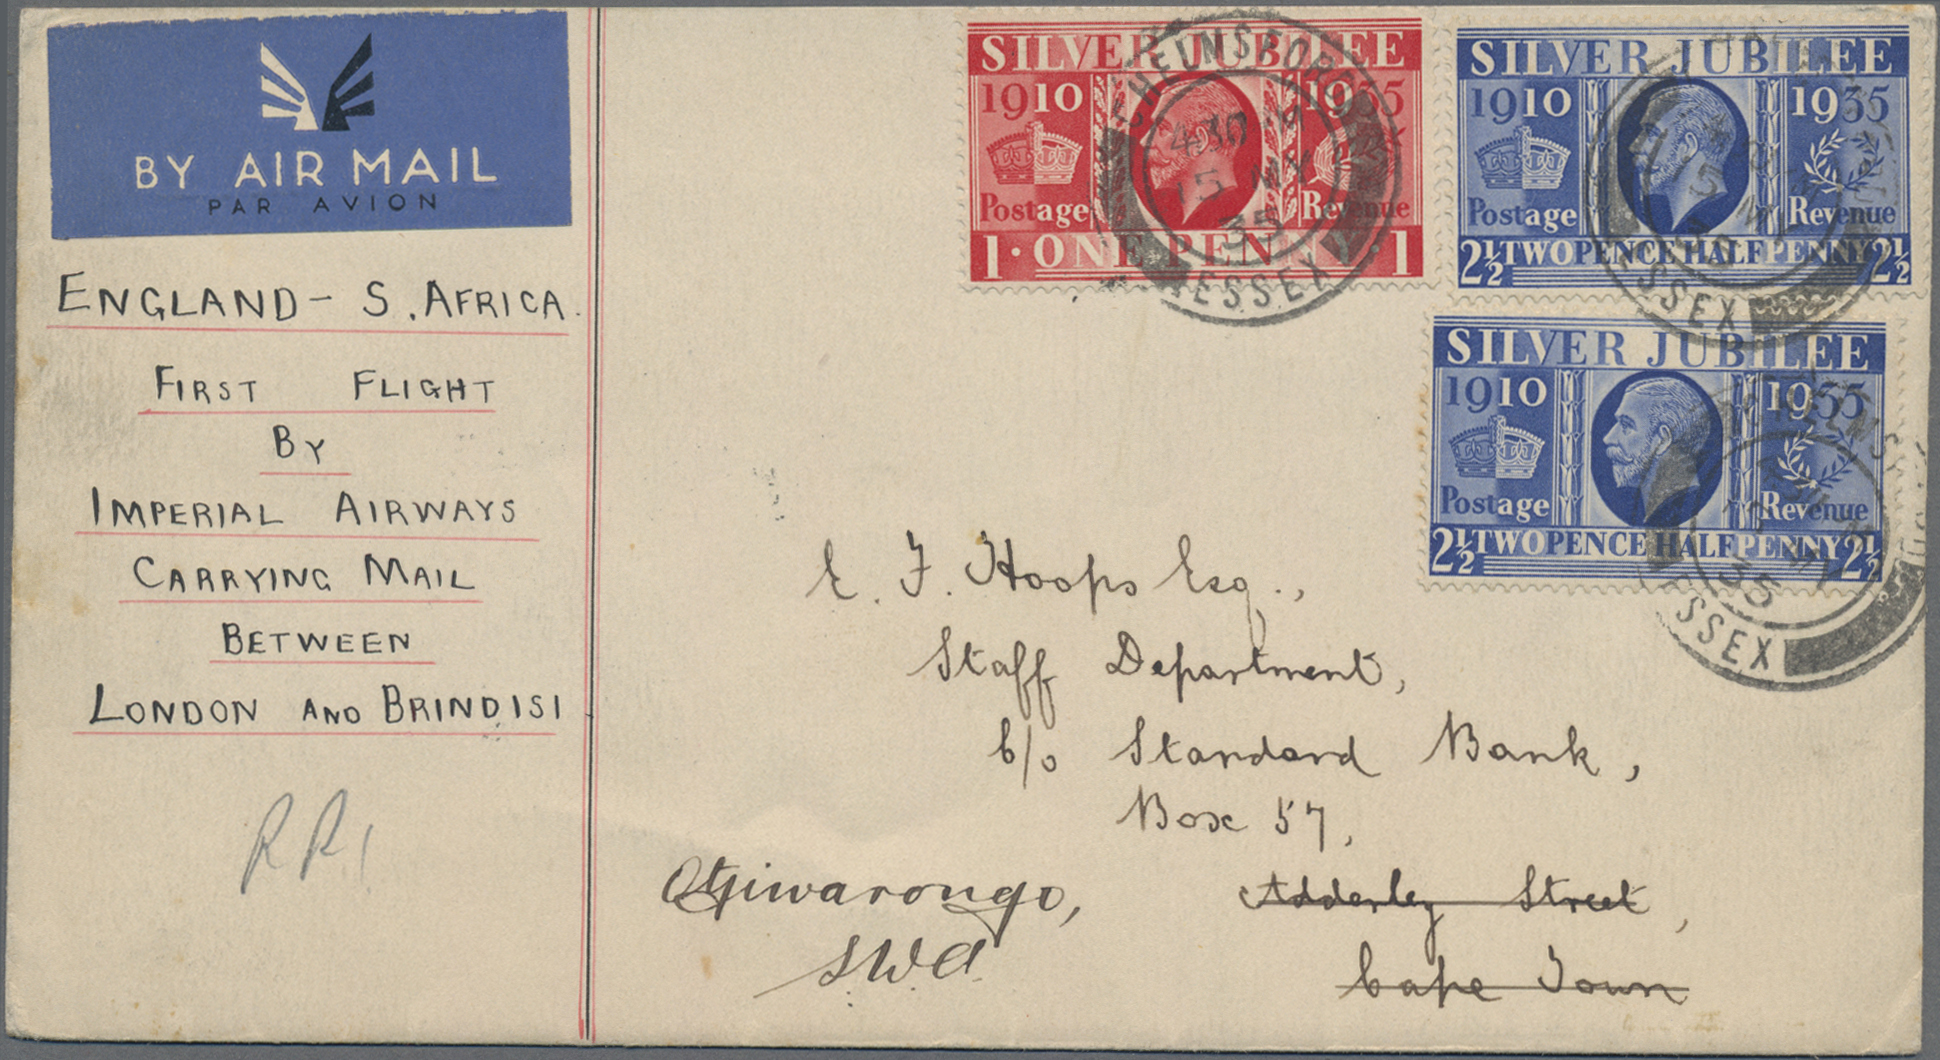 BY AIR MAIL
PAR AVION
ENGLAND - S. AFRICA.
FIRST FLIGHT
BY
IMPERIAL AIRWAYS
CARRYING MAIL
BETWEEN
LONDON AND BRINDISI
RR1
SILVER JUBILEE
1910 1935
Postage Revenue
1 · ONE PENNY · 1
CHELMSFORD
430 PM
15 MY
35
ESSEX
SILVER JUBILEE
1910 1935
Postage Revenue
2½ TWOPENCE HALFPENNY 2½
ESSEX
SILVER JUBILEE
1910 1935
Postage Revenue
2½ TWOPENCE HALFPENNY 2½
15 MY
35
ESSEX
E. F. Hoops Esq.,
Staff Department,
c/o Standard Bank,
Box 57,
Adderley Street,
Cape Town
Otjiwarongo,
S.W.A.